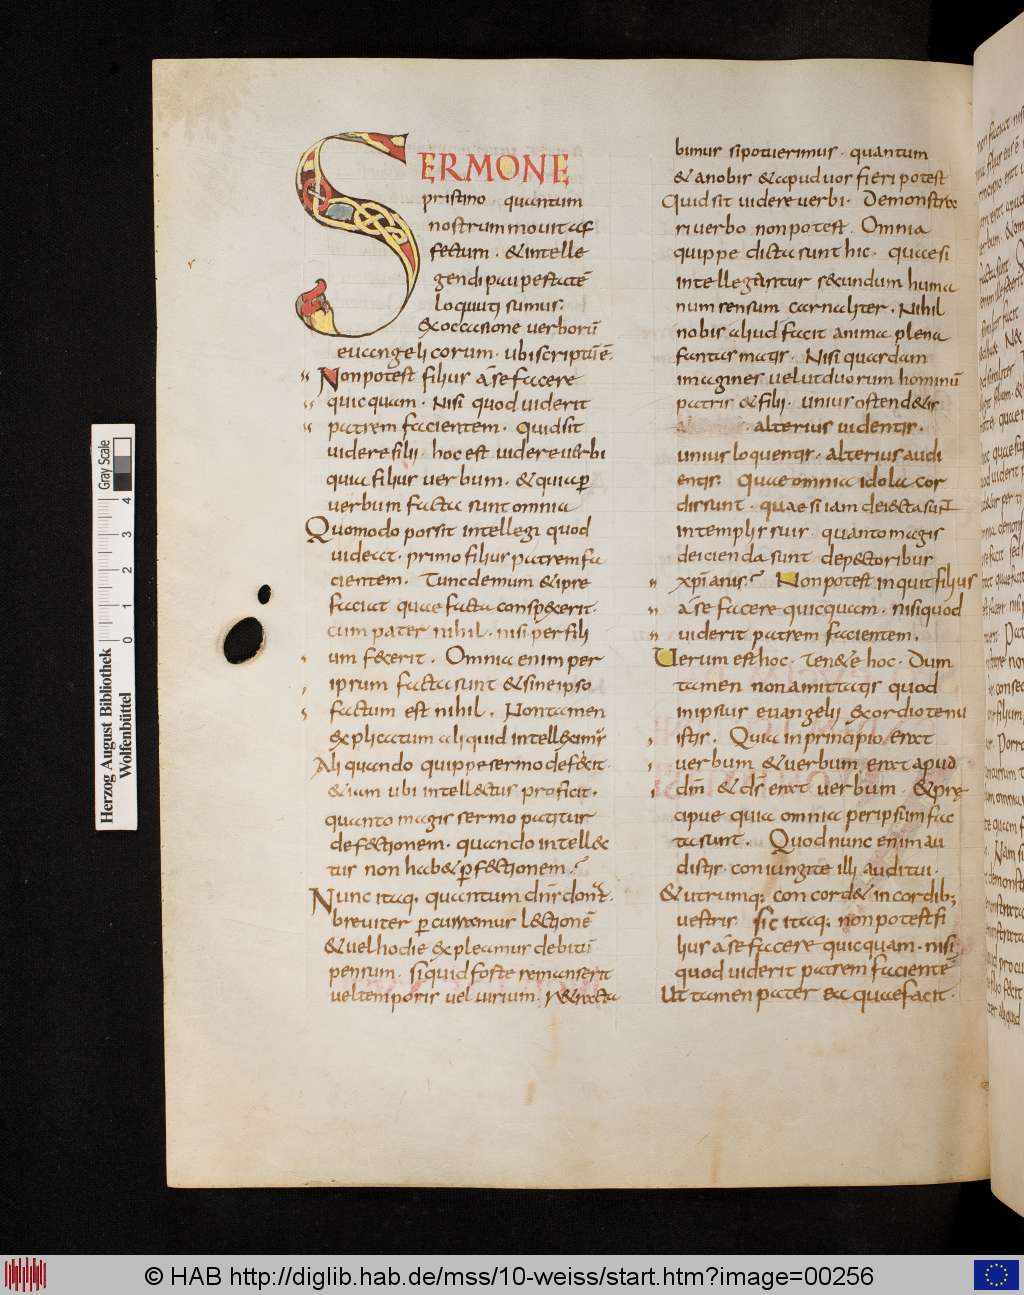 SERMONE
pristino quantum
nostrum mouit af
fectum · & intelle
gendi paupertatē
loquuti sumus;
Ex occasione uerborū
euangelicorum · ubi scriptū ē ·
Non potest filius a se facere
quicquam · Nisi quod uiderit
patrem facientem · Quid sit
uidere filii · hoc est uidere uerbi
quia filius uerbum · & quia ꝑ
uerbum facta sunt omnia
Quomodo possit intellegi quod
uideat · primo filius patrem fa
cientem · Tunc demum & ipse
faciat quae facta conspexerit ·
cum pater nihil · nisi per fili
um fecerit · Omnia enim per
ipsum facta sunt & sine ipso
factum est nihil · Non tamen
explicatum aliquid intelleximus
Aliquando quippe sermo deficit ·
& iam ubi intellectus proficit ·
quanto magis sermo patitur
defectionem · quando intelle
tus non habet ꝑfectionem ?
Nunc itaq; quantum dn̄s donat ·
breuiter ꝑcurramus lectionē
& uel hodie expleamus debitū
pensum · si quid forte remanserit
uel temporis uel uirium · retracta
bimus si potuerimus · quantum
& a nobis & apud uos fieri potest
Quid sit uidere uerbi · Demonstra
ri uerbo non potest · Omnia
quippe dicta sunt hic · quae si
intellegantur secundum huma
num sensum carnaliter · Nihil
nobis aliud facit anima plena
fantasmatis · Nisi quasdam
imagines uelut duorum hominū
patris & filii · unius ostendetis
· alterius uidentis ·
unius loquentis · alterius audi
entis · Quae omnia idola cor
dis sunt · quae si iam deiecta sunt
in templis suis quanto magis
deicienda sunt de pectoribus
xp̄ianis ? Non potest inquit filius
a se facere quicquam · nisi quod
uiderit patrem facientem ·
Uerum est hoc · Tenete hoc · Dum
tamen non amittatis quod
in ipsius euangelii exordio tenu
istis · Quia in principio erat
uerbum & uerbum erat apud
dm̄ & ds̄ erat uerbum · & prę
cipue quia omnia per ipsum fac
ta sunt · Quod nunc enim au
distis · coniungite illi auditui ·
& utrumq; concordet in cordib;
uestris · sic itaq; non potest fi
lius a se facere quicquam · nisi
quod uiderit patrem facientē
Ut tamen pater ea quae facit ·
Herzog August Bibliothek
Wolfenbüttel
Gray Scale
0 1 2 3 4
© HAB http://diglib.hab.de/mss/10-weiss/start.htm?image=00256